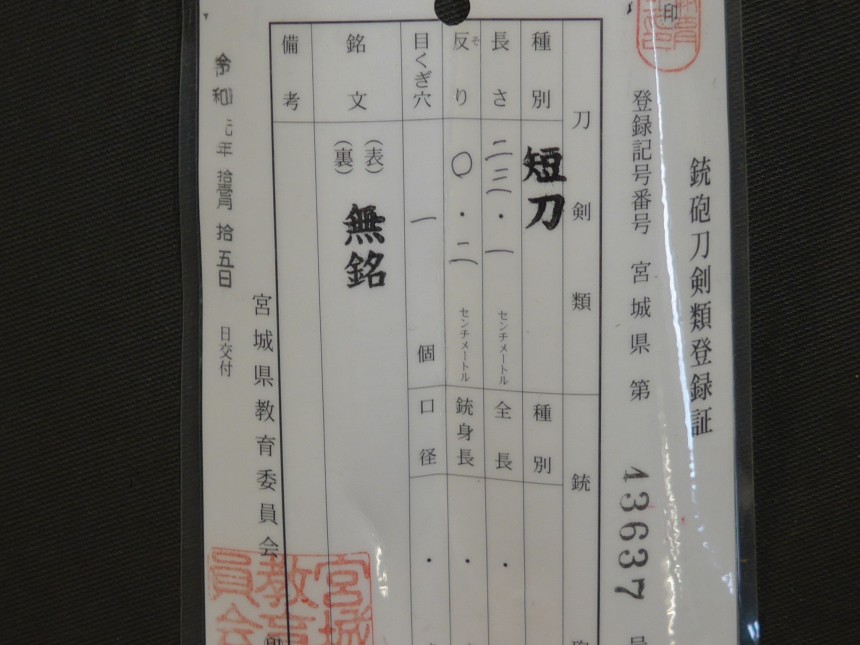 銃砲刀剣類登録証
登録記号番号 宮城県 第 43637 号
印
刀剣類
種別 短刀
長さ 二三・一 センチメートル
反り そ 〇・二 センチメートル
目くぎ穴 一 個
銘文 (表) (裏) 無銘
備考
銃砲
種別
全長 ・
銃身長 ・
口径 ・
令和元年 拾壱月 拾五日 日交付
宮城県教育委員会 印
宮城
教育
員会